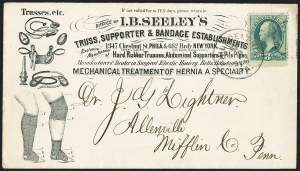 Trusses, etc.
If not called for in TEN days, please return to
OFFICE OF
I.B. SEELEY'S
TRUSS, SUPPORTER & BANDAGE ESTABLISHMENTS
1347 Chestnut St. PHILA & 682 Br'dy NEW YORK.
Hard Rubber Trusses, Abdominal Supporters, Pile Pipes
MECHANICAL TREATMENT OF HERNIA A SPECIALTY.
Dr. J G Lightner
Allenville
Mifflin Co
Penn.